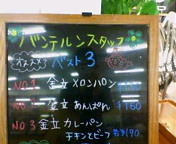 バンテルンスタッフ
オススメ! ベスト3
NO1 金立メロンパン
金立あんぱん ¥150
NO3 金立カレーパン
チキンとビーフ 各¥190